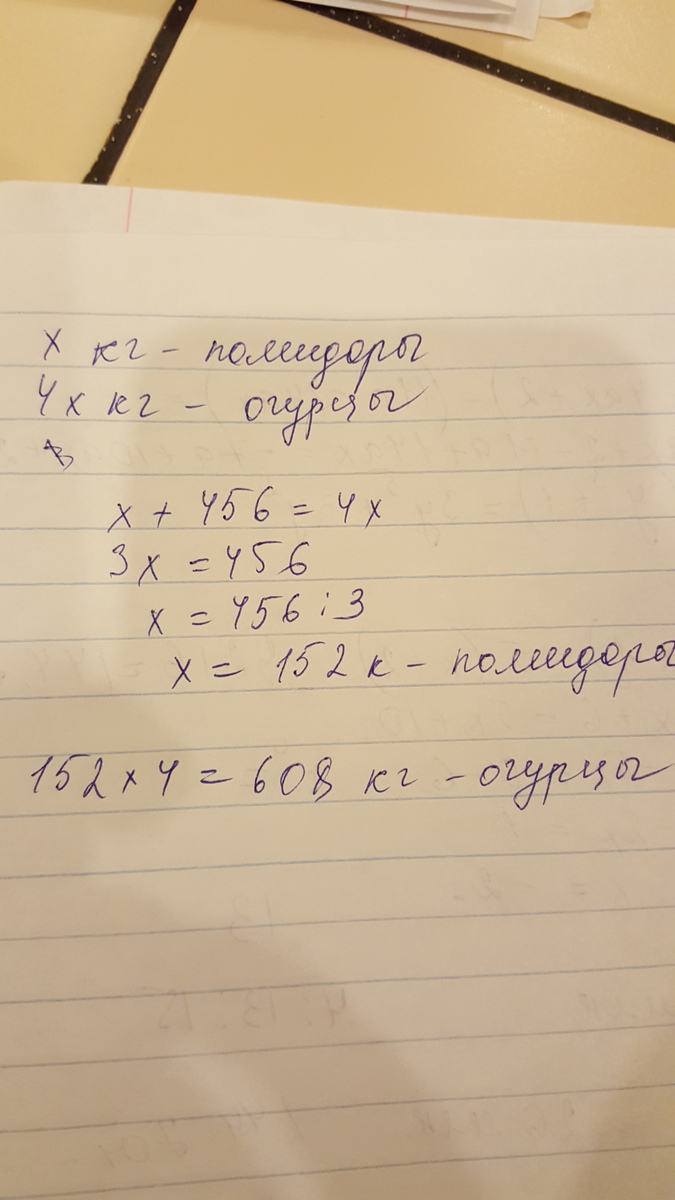 x кг - помидоры
4x кг - огурцы
x + 456 = 4x
3x = 456
x = 456 : 3
x = 152 к - помидоры
152 × 4 = 608 кг - огурцы